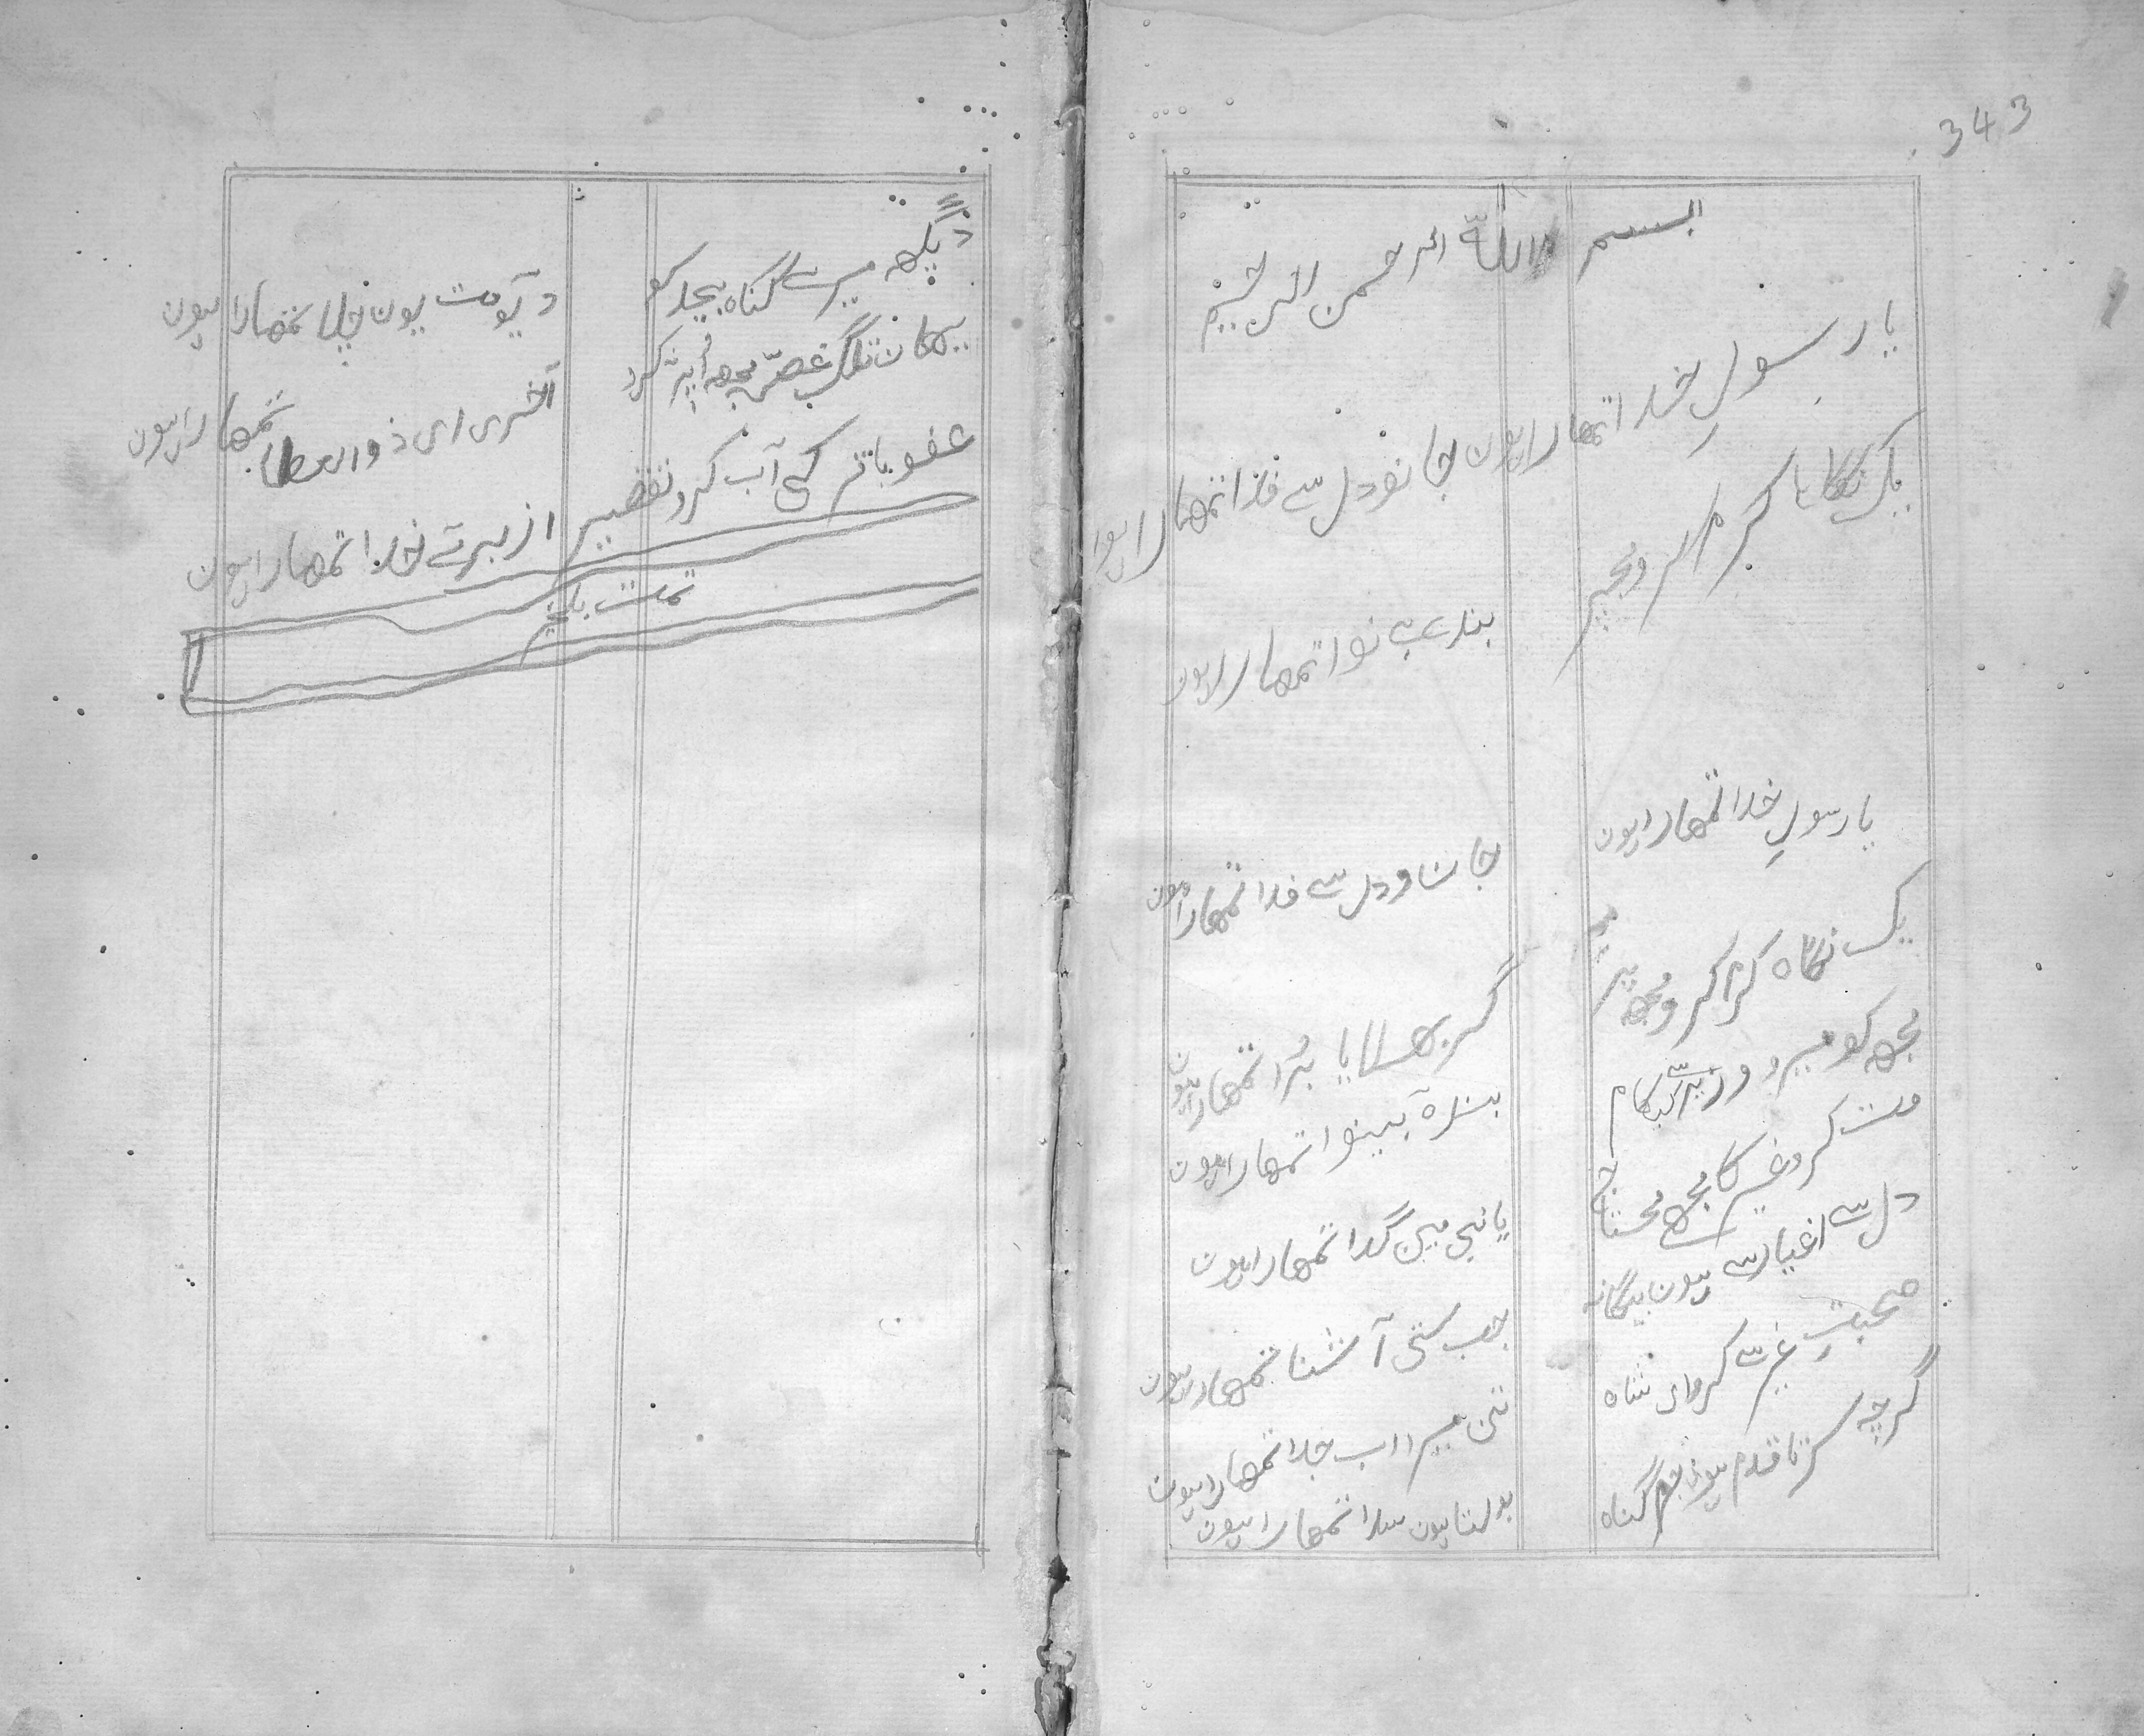 343
بسم الله الرحمن الرحیم
یا رسولِ خدا تمھارا ہون جانودل سے فدا تمھارا ہون
یک نگاہ کرم کرو مجھپر
بندے بے نوا تمھارا ہون
یا رسولِ خدا تمھارا ہون
جان و دل سے فدا تمھارا ہون
یک نگاہ کرم کرو مجھ پر
گر بھلا یا بُرا تمھارا ہون
مجھ کو میر و وزیر سے کیا کام
بندہ بینوا تمھارا ہون
مت کرو غیر کا مجھے محتاج
یا نبی مین گدا تمھارا ہون
دل سے اغیار سے ہون بیگانہ
جب ستی آشنا تمھارا ہون
صحبتِ غیر سے کرو ای شاہ
تن میرا اب جدا تمھارا ہون
گرچہ سر تا قدم ہون جرم گناہ
بد لتا ہون سدا تمھارا ہون
دیکھ میرے گناہ بیحد کو
یہان تلک غصّہ مجھ اُپر نہ کرو
آخری ای ذوالعطا تمھارا ہون
عفو باقر کی آب کرو تقصیر
از برے خدا تمھارا ہون
تمت